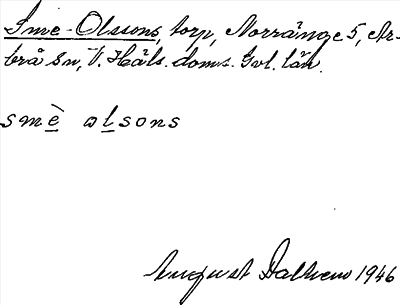 Smé-Olssons, torp, Norränge 5, Ar-
brå Sn, V. Häls. doms. Gvl. län.
smè olsons
August Dalhem 1946